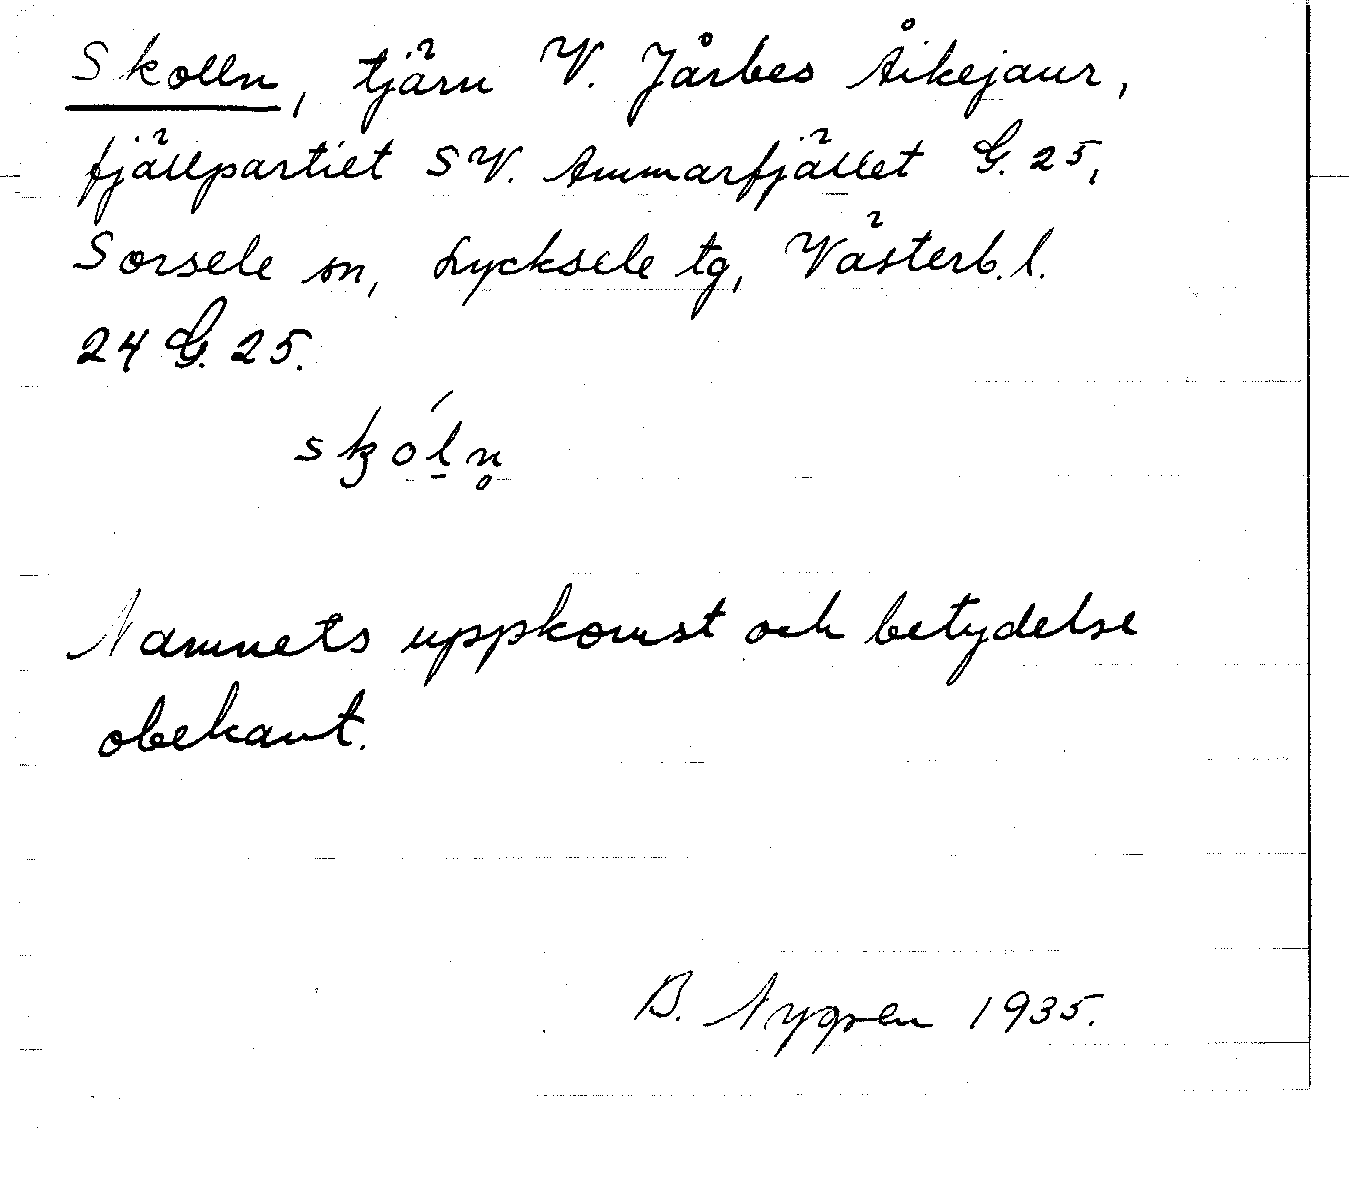 Skolln, tjärn V. Jårbes Åikejaur,
fjällpartiet SV. Ammarfjället G. 25,
Sorsele sn, Lycksele tg, Västerb. l.
24 G. 25.
skól̲n̥
Namnets uppkomst och betydelse
obekant.
B. Nygren 1935.